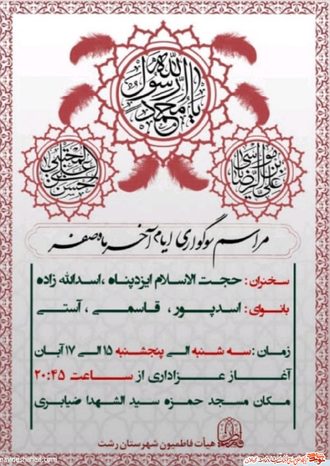 یا محمد رسول الله
مراسم سوگواری ایام آخر ماه صفر
سخنران : حجت الاسلام ایزدپناه ، اسدالله زاده
بانوای : اسدپور ، قاسمی ، آستی
زمان : سه شنبه الی پنجشنبه ۱۵ الی ۱۷ آبان
آغاز عزاداری از ساعت ۲۰:۴۵
مکان مسجد حمزه سید الشهدا ضیابری
هیأت فاطمیون شهرستان رشت